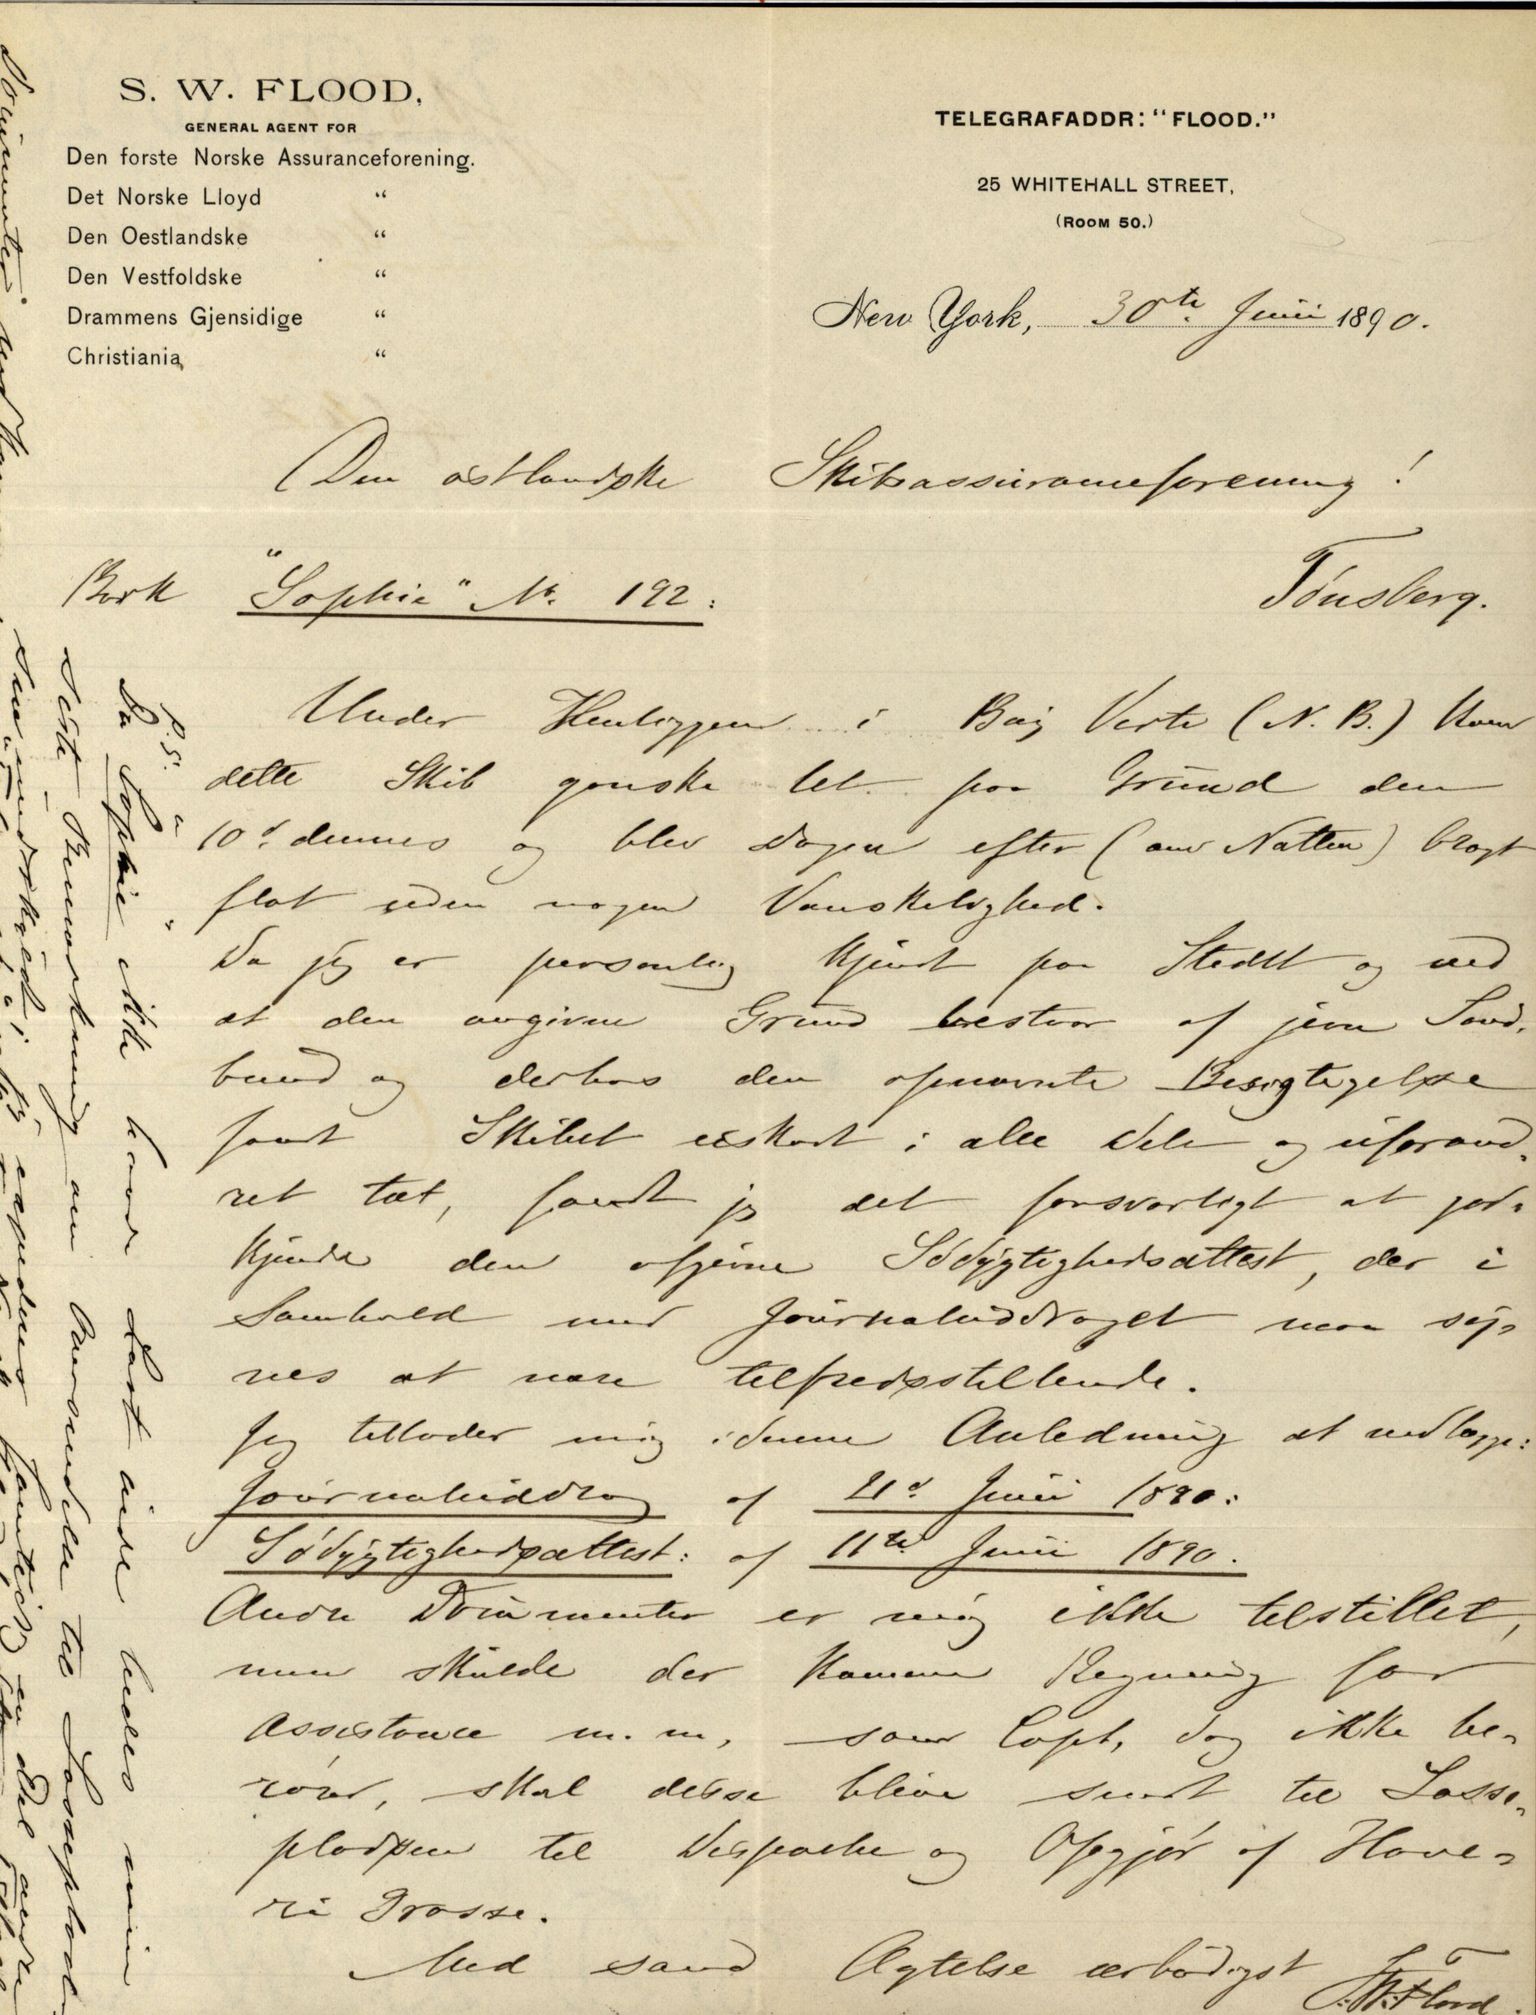 S. W. FLOOD,
GENERAL AGENT FOR
Den forste Norske Assuranceforening.
Det Norske Lloyd "
Den Oestlandske "
Den Vestfoldske "
Drammens Gjensidige "
Christiania "
TELEGRAFADDR: "FLOOD."
25 WHITEHALL STREET,
(ROOM 50.)
New York, 30te Juni 1890.
Den østlandske Skibsassuranceforening!
Tønsberg.
Bark "Sophie" No. 192:
Under Henliggen i Bay Verte (N. B.) kom
dette Skib ganske let paa Grund den
10d dennes og blev Dagen efter (om Natten) bragt
flot uden nogen Vanskelighed.
Da jeg er personlig kjendt paa Stedet og ved
at den angivne Grund bestaar af jevn Sand-
bund og derhos den opnævnte Besigtigelse
fandt Skibet uskadt i alle Dele og uforand-
ret tæt, fandt jeg det forsvarligt at god-
kjende den afgivne Sødygtighedsattest, der i
Samhold med Journaluddraget maa sy-
nes at være tilfredsstillende.
Jeg tillader mig i denne Anledning at vedlægge:
Journaluddrag af 21d Juni 1890:
Sødygtighedsattest: af 11te Juni 1890.
Andre Documenter er mig ikke tilstillet,
men skulde der komme Regning for
Assistance m. m., som Capt. dog ikke be-
rører, skal disse blive sendt til Losse-
pladsen til Dispache og Opgjør af Have-
ri Grosse.
Med sand Agtelse ærbødigst
S. W. Flood.
P. S.
Da "Sophie" ikke havde Last inde bedes min
sidste Bemærkning om Oversendelse til Lossepladsen